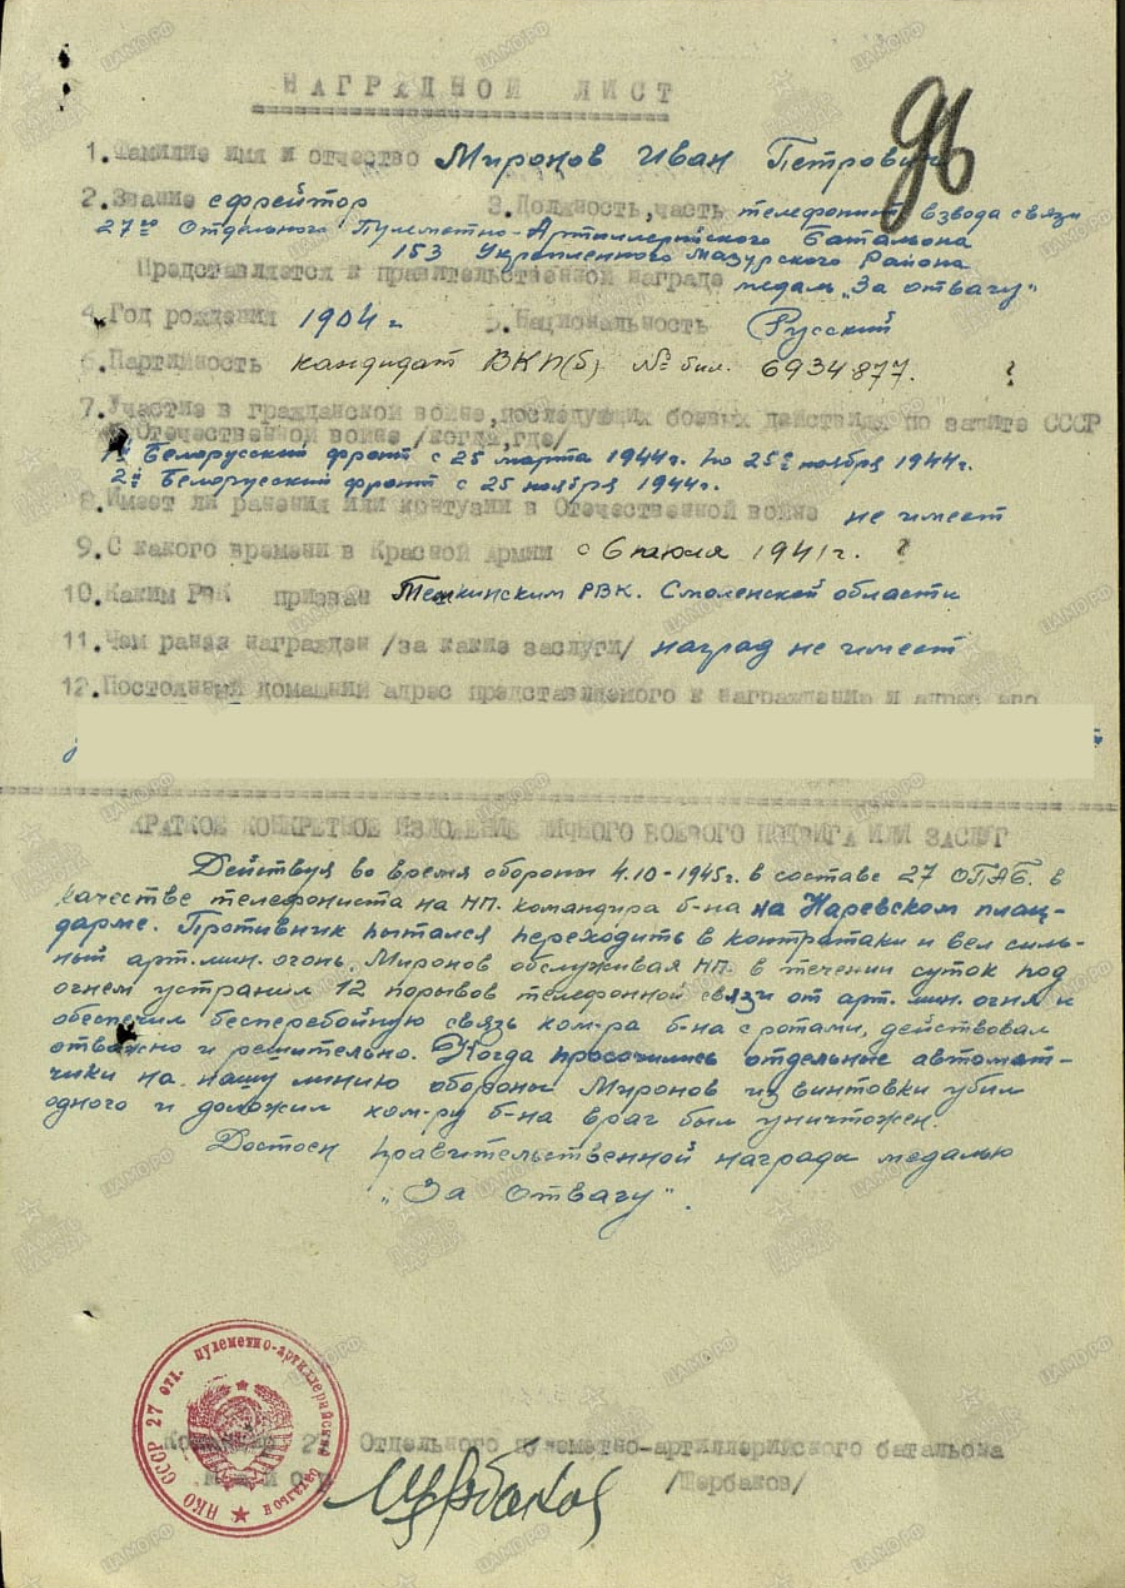 НАГРАДНОЙ ЛИСТ
96
1. Фамилие имя и отчество Миронов Иван Петрович
2. Звание ефрейтор 3. Должность, часть телефонист взвода связи
27го Отдельного Пулеметно-Артиллерийского Батальона
153 Укрепленного Мазурского Района
Представляется к правительственной награде медаль „За отвагу"
4. Год рождения 1904 г. 5. Национальность Русский
6. Партийность кандидат ВКП(б) № бил. 6934877. ?
7. Участие в гражданской войне, последующих боевых действиях по защите СССР
и Отечественной войне /когда, где/
1й Белорусский фронт с 25 марта 1944г. по 25е ноября 1944г.
2й Белорусский фронт с 25 ноября 1944г.
8. Имеет ли ранения или контузии в Отечественной войне не имеет
9. С какого времени в Красной Армии с 6 июля 1941г. ?
10. Каким РВК призван Темкинским РВК. Смоленской области
11. Чем ранее награжден /за какие заслуги/ наград не имеет
12. Постоянный домашний адрес представляемого к награждению и адрес его
КРАТКОЕ КОНКРЕТНОЕ ИЗЛОЖЕНИЕ ЛИЧНОГО БОЕВОГО ПОДВИГА ИЛИ ЗАСЛУГ
Действуя во время обороны 4.10-1945г. в составе 27 ОПАБ. в
качестве телефониста на НП. командира б-на на Наревском плац-
дарме. Противник пытался переходить в контратаки и вел силь-
ный арт.мин. огонь. Миронов обслуживая НП. в течении суток под
огнем устранил 12 порывов телефонной связи от арт. мин. огня и
обеспечил бесперебойную связь ком-ра б-на с ротами, действовал
отважно и решительно. Когда просочились отдельные автомат-
чики на нашу линию обороны Миронов из винтовки убил
одного и доложил ком-ру б-на враг был уничтожен.
Достоен правительственной награды медалью
„За отвагу".
НКО СССР 27 отд. пулеметно-артиллерийский батальон
Командир 27 Отдельного пулеметно-артиллерийского батальона
майор Щербаков /Щербаков/
ЦАМО.РФ
ПАМЯТЬ НАРОДА